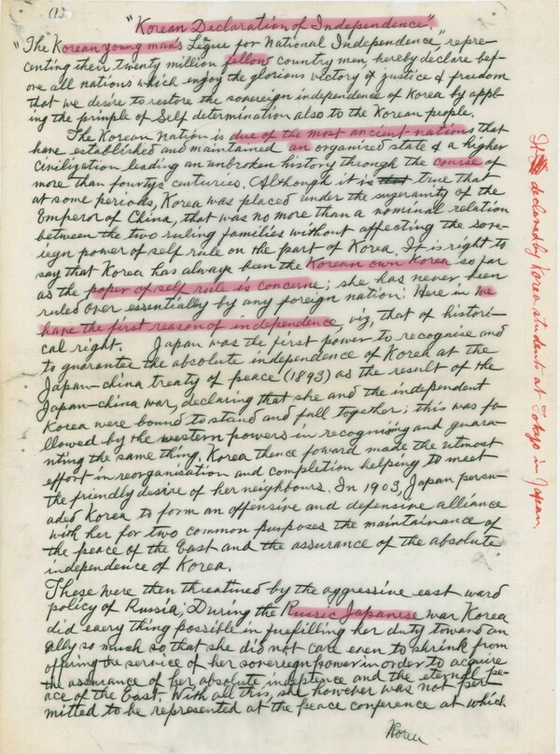 (1).
"Korean Declaration of Independence",
"The Korean young man's Legue for National Independence", repre-
centing their twenty million fellow country men, hereby declare bef-
ore all nations which enjoy the glorious victory of justice & freedom
that we desire to restore the sovereign independence of Korea by appl-
ing the prinple of Self determination also to the Korean people.
The Korean Nation is due of the most ancient nations that
have established and maintained an organised state & a higher
civilization, leading an unbroken history through the course of
more than fourtys centuries. Although it is that true that
at some periods, Korea was placed under the sugerainty of the
Emperor of China, that was no more than a nominal relation
between the two ruling families without affecting the sov-
ereign power of self rule on the part of Korea. It is right to
say that Korea has always been the Korean own Korea so far
as the poper of self rule is concerne; she has never been
ruled over essentially by any foreign nation. Here in we
have the first reason of independence, viz, that of histori-
cal right. Japan was the first power to recognise and
to guarantee the absolute independence of Korea at the
Japan-china treaty of peace (1893) as the result of the
Japan-china war, declaring that she and the independent
Korea were bound to stand and fall together; this was fo-
llowed by the western powers in recognising and guara-
nting the same thing. Korea thence foward made the utmost
effort in reorganisation and completion helping to meet
the friendly desire of her neighbours. In 1903, Japan persu-
aded Korea to form an offensive and defensive alliance
with her for two common purposes the maintainance of
the peace of the East and the assurance of the absolute
independence of Korea.
These were then threatined by the aggressive east ward
policy of Russia; During the Russic Japanese war Korea
did every thing possible in fuefilling her duty toward an
ally so much so, that she did not care even to shrink from
offering the service of her sovereign power in order to acquire
the assurance of her absolute indeptence and the eternal pe-
ace of the East. With all this, she however was not per-
mitted to be represented at the peace conference at which
Korea
It declared by Korea students at Tokyo in Japan